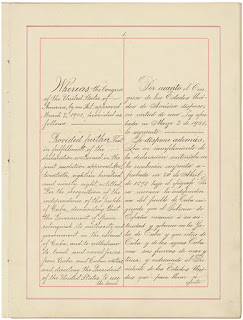 Whereas the Congress
of the United States of
America, by an Act approved
March 2, 1901, provided as
follows:
Provided further, That
in fulfillment of the
declaration contained in the
joint resolution approved April
twentieth, eighteen hundred
and ninety-eight, entitled
"For the recognition of the
independence of the people
of Cuba, demanding that
the Government of Spain
relinquish its authority and
government in the island
of Cuba, and to withdraw
its land and naval forces
from Cuba and Cuban waters,
and directing the President
of the United States to use
the land
Por cuanto el Con-
greso de los Estados Uni-
dos de America dispuso,
en virtud de una Ley apro-
bada en Marzo 2 de 1901,
lo siguiente:
Se dispone además,
Que en cumplimiento de
la declaracion contenida en
la resolucion conjunta a-
probada en 20 de Abril
de 1898
del pueblo de Cuba exi-
giendo que el Gobierno de
España renuncie á su au-
toridad y gobierno en la Isla
de Cuba y que retire de
Cuba y de las aguas Cuba-
nas sus fuerzas de mar y
tierra; y ordenando al Pre-
sidente de los Estados Uni-
dos que para llevar á
efecto